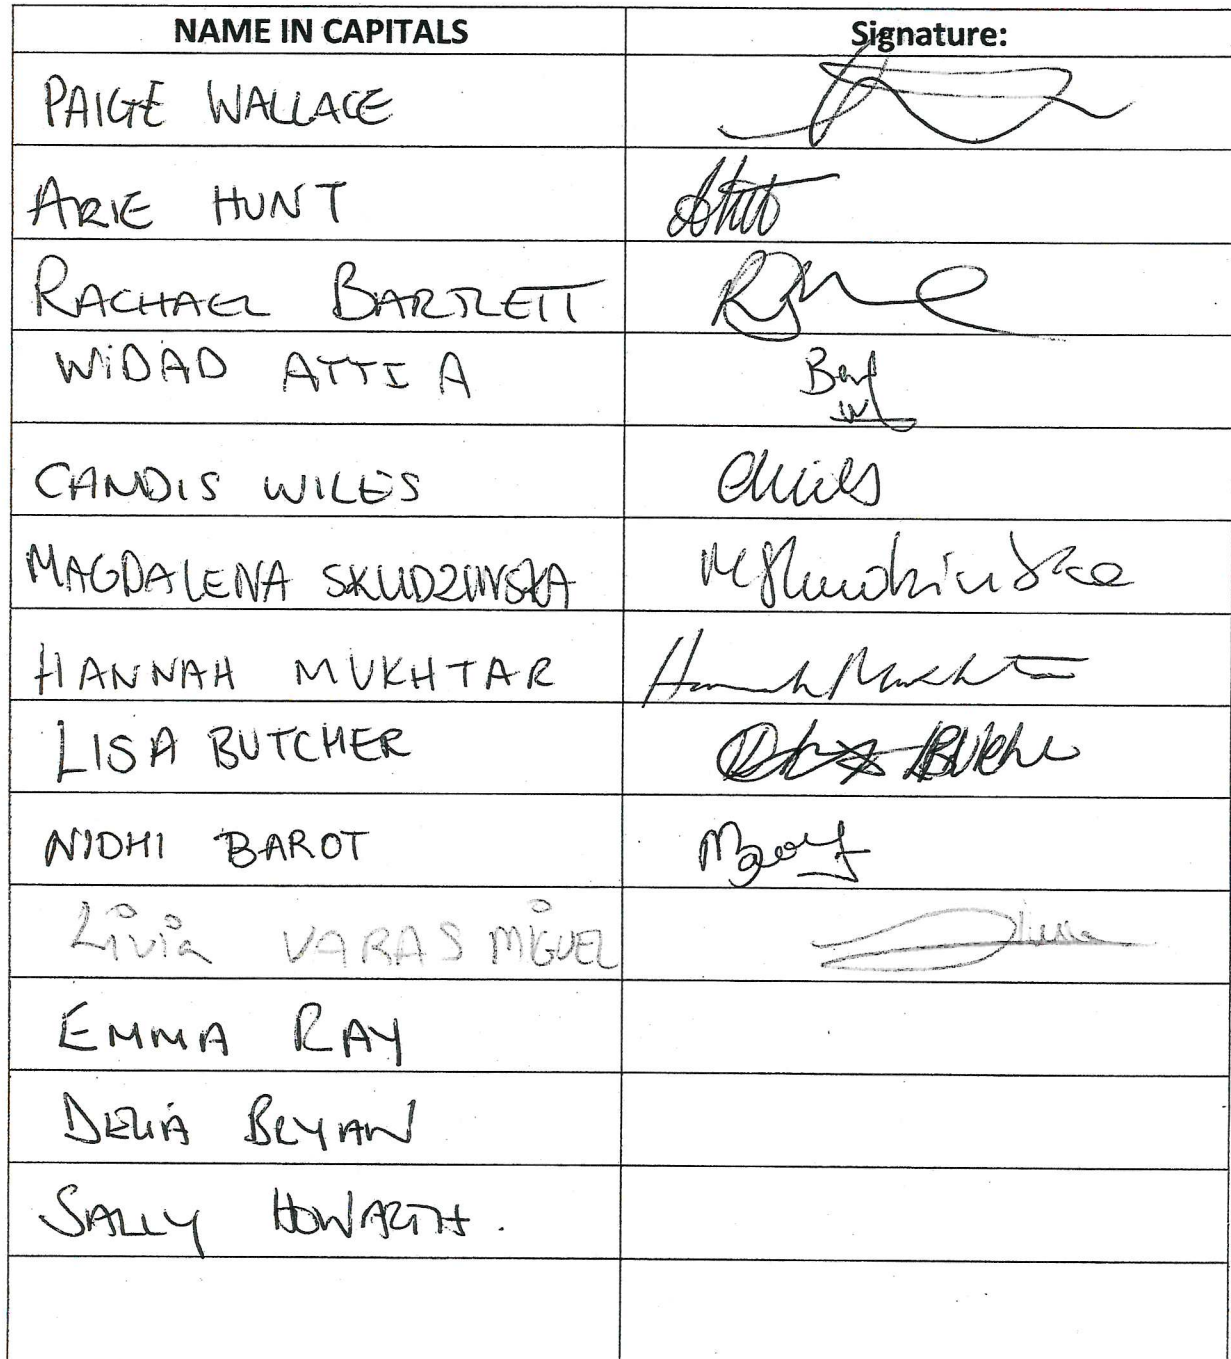 NAME IN CAPITALS Signature:
PAIGE WALLACE
ARIE HUNT
RACHAEL BARTLETT
WIDAD ATTIA
CANDIS WILES
MAGDALENA SKUDZINSKA
HANNAH MUKHTAR Hannah Mukhtar
LISA BUTCHER
NIDHI BAROT
Livia VARAS MIGUEL
EMMA RAY
DELIA BRYAN
SALLY HOWARTH.